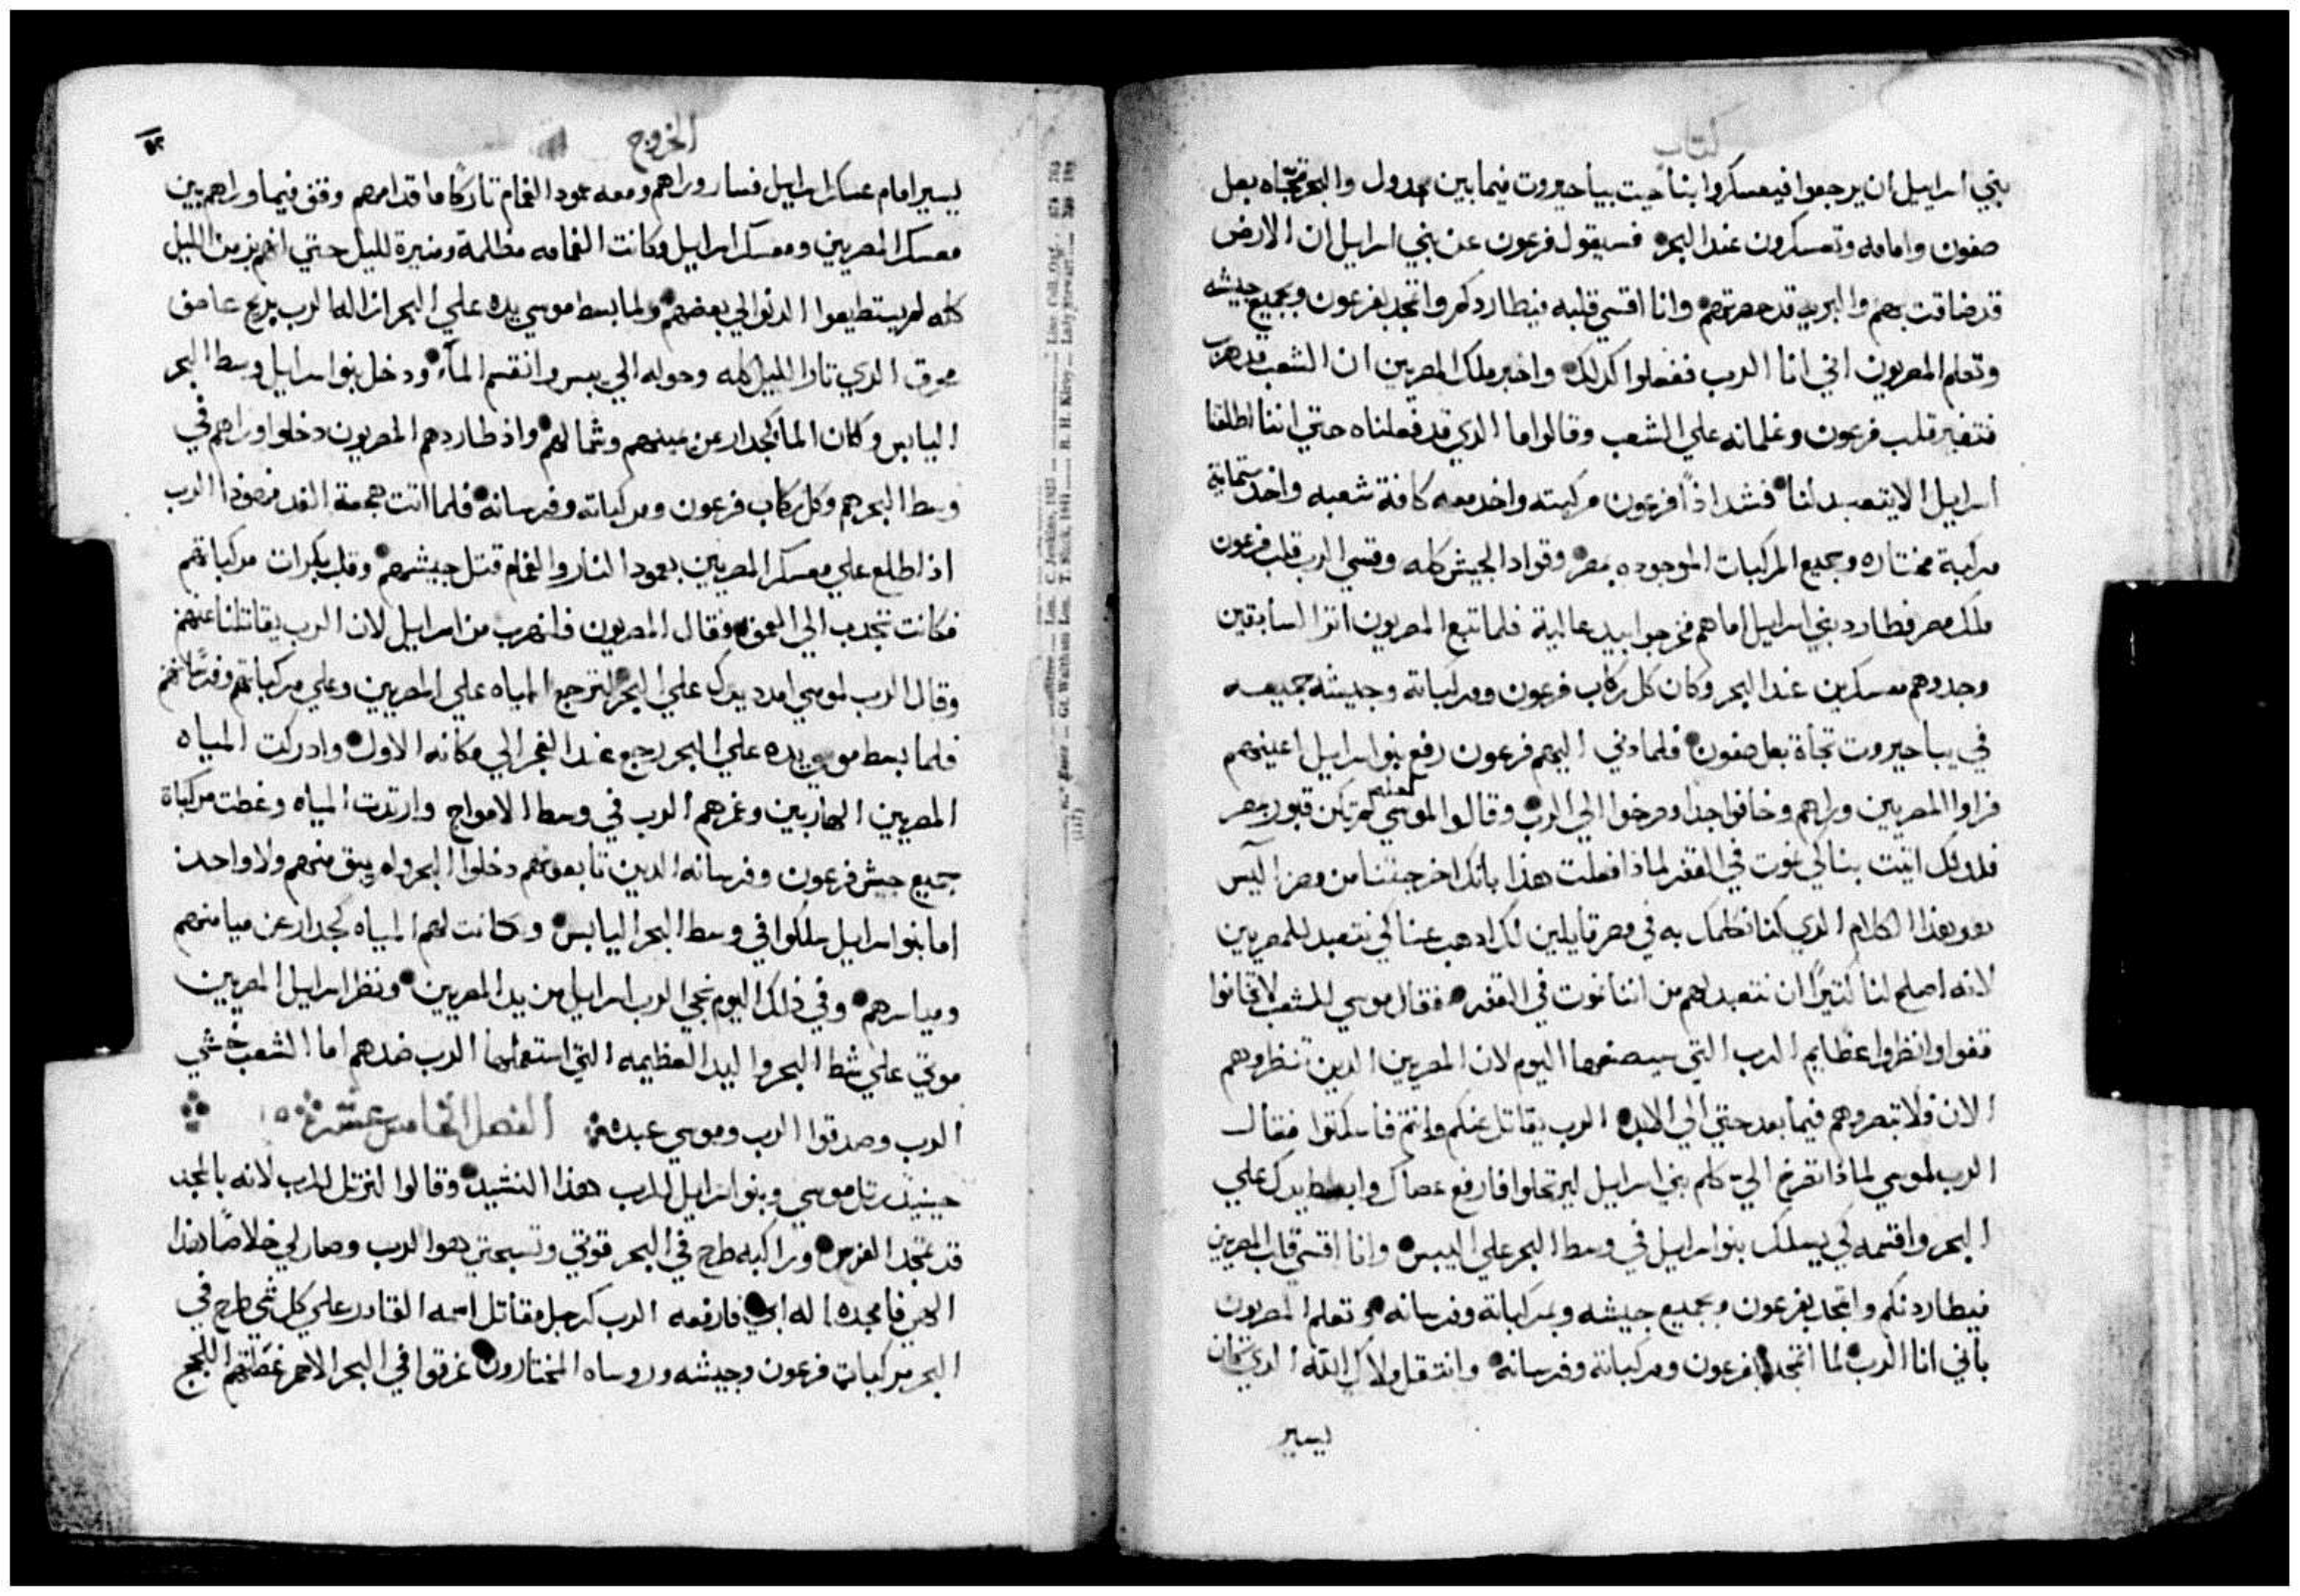 كتاب
بني اسراييل ان يرجعوا فيعسكروا بناحيت بياحيروت فيما بين مجدول والبحر تجاه بعل
صفون وامامه وتعسكرون عند البحر فسيقول فرعون عن بني اسراييل ان الارض
قد ضاقت بهم والبريه قد حصرتهم وانا اقسي قلبه فيطاردكم واتمجد بفرعون وبجميع جيشه
وتعلم المصريون اني انا الرب ففعلوا كدلك واخبر ملك المصريين ان الشعب قد هرب
فتغير قلب فرعون وغلمانه علي الشعب وقالوا ما الدي قد فعلناه حتي اننا اطلقنا
اسراييل الا يتعبد لنا فشد اذًا فرعون مركبته واخد معه كافة شعبه واخد ستماية
مركبة مختاره وجميع المركبات الموجوده بمصر وقواد الجيش كله وقسي الرب قلب فرعون
ملك مصر فطارد بني اسراييل اما هم فخرجوا بيد عالية فلما تبع المصريون اثر السابقين
وجدوهم معسكرين عند البحر وكان كل ركاب فرعون ومركباته وجيشه جميعه
في بياحيروت تجاة بعل صفون فلما دني اليهم فرعون رفع بنوا اسراييل اعينهم
فراوا المصريين وراهم وخافوا جدا وصرخوا الي الرب وقالوا لموسي لعله لم تكن قبور بمصر
فلدلك اتيت بنا لكي نموت في القفر لماذا فعلت هذا بانك اخرجتنا من مصر اليس
هو هذا الكلام الدي كنا نكلمك به في مصر قايلين لك ادهب عنا كي نتعبد للمصريين
لانه اصلح لنا كتيرًا ان نتعبد لهم من اننا نموت في القفر فقال موسي للشعب لا تخافوا
قفوا وانظروا عظايم الرب التي سيصنعها اليوم لان المصريين الدين تنظروهم
الان فلا تبصروهم فيما بعد حتي الي الابد الرب يقاتل عنكم وانتم فاسكتوا فقال
الرب لموسي لماذا تصرخ الي كلم بني اسراييل ليرتحلوا فارفع عصاك وابسط يدك علي
البحر واقسمه لكي يسلك بنوا اسراييل في وسط البحر علي اليبس وانا اقسي قلب المصريين
فيطاردنكم واتمجد بفرعون وبجميع جيشه وبمركباته وفرسانه وتعلم المصريون
باني انا الرب لما اتمجد بفرعون ومركباته وفرسانه وانتقل ملاك الله الدي كان
يسير
الخروج
٥٢
يسير امام عسكر اسراييل فسار وراهم ومعه عمود الغمام تاركًا ما قدامهم وقف فيما وراهم بين
معسكر المصريين ومعسكر اسراييل وكانت الغمامه مظلمة ومنيرة لليل حتي انهم من الليل
كله لم يستطيعوا الدنوا الي بعضهم ولما بسط موسي يده علي البحر ازاله الرب بريح عاصف
محرق الدي تار الليل كله وحوله الي يبس وانقسم المآء ودخل بنوا اسراييل وسط البحر
اليابس وكان الما كجدار عن يمينهم وشمالهم واذ طاردهم المصريون دخلوا وراهم في
وسط البحر هم وكل ركاب فرعون ومركباته وفرسانه فلما اتت هجعة الغد الرب
اذ اطلع علي معسكر المصريين بعمود النار والغمام قتل جيشهم وقلب بكرات مركباتهم
فكانت تجدب الي العمق فقال المصريون فلنهرب من اسراييل لان الرب يقاتلنا عنهم
وقال الرب لموسي امدد يدك علي البحر لترجع المياه علي المصريين وعلي مركباتهم وفرسانهم
فلما بسط موسي يده علي البحر رجع عند الفجر الي مكانه الاول وادركت المياه
المصريين الهاربين وغرهم الرب في وسط الامواج وارتدت المياه وغطت مركباة
جميع جيش فرعون وفرسانه الدين تابعوهم دخلوا البحر ولم يبق منهم ولا واحد
اما بنوا اسراييل سلكوا في وسط البحر اليابس وكانت لهم المياه كجدار عن ميامنهم
ومياسرهم وفي ذلك اليوم نجي الرب اسراييل من يد المصريين ونظر اسراييل المصريين
موتي علي شط البحر واليد العظيمه التي استعملها الرب ضدهم اما الشعب خشي
الرب وصدقوا الرب وموسي عبده الفصل الخامس عشر ١٥
حينيد رتل موسي وبنوا اسراييل للرب هذا النشيد وقالوا لنرتل للرب لانه بالمجد
قد تمجد الفرس وراكبه طرح في البحر قوتي وتسبحتي هوا الرب وصار لي خلاصًا هذا
الاهي فامجده اله ابي فارفعه الرب كرجل مقاتل اسمه القادر علي كل شي طرح في
البحر مركبات فرعون وجيشه وروساه المختارون غرقوا في البحر الاحمر غطتهم اللجج